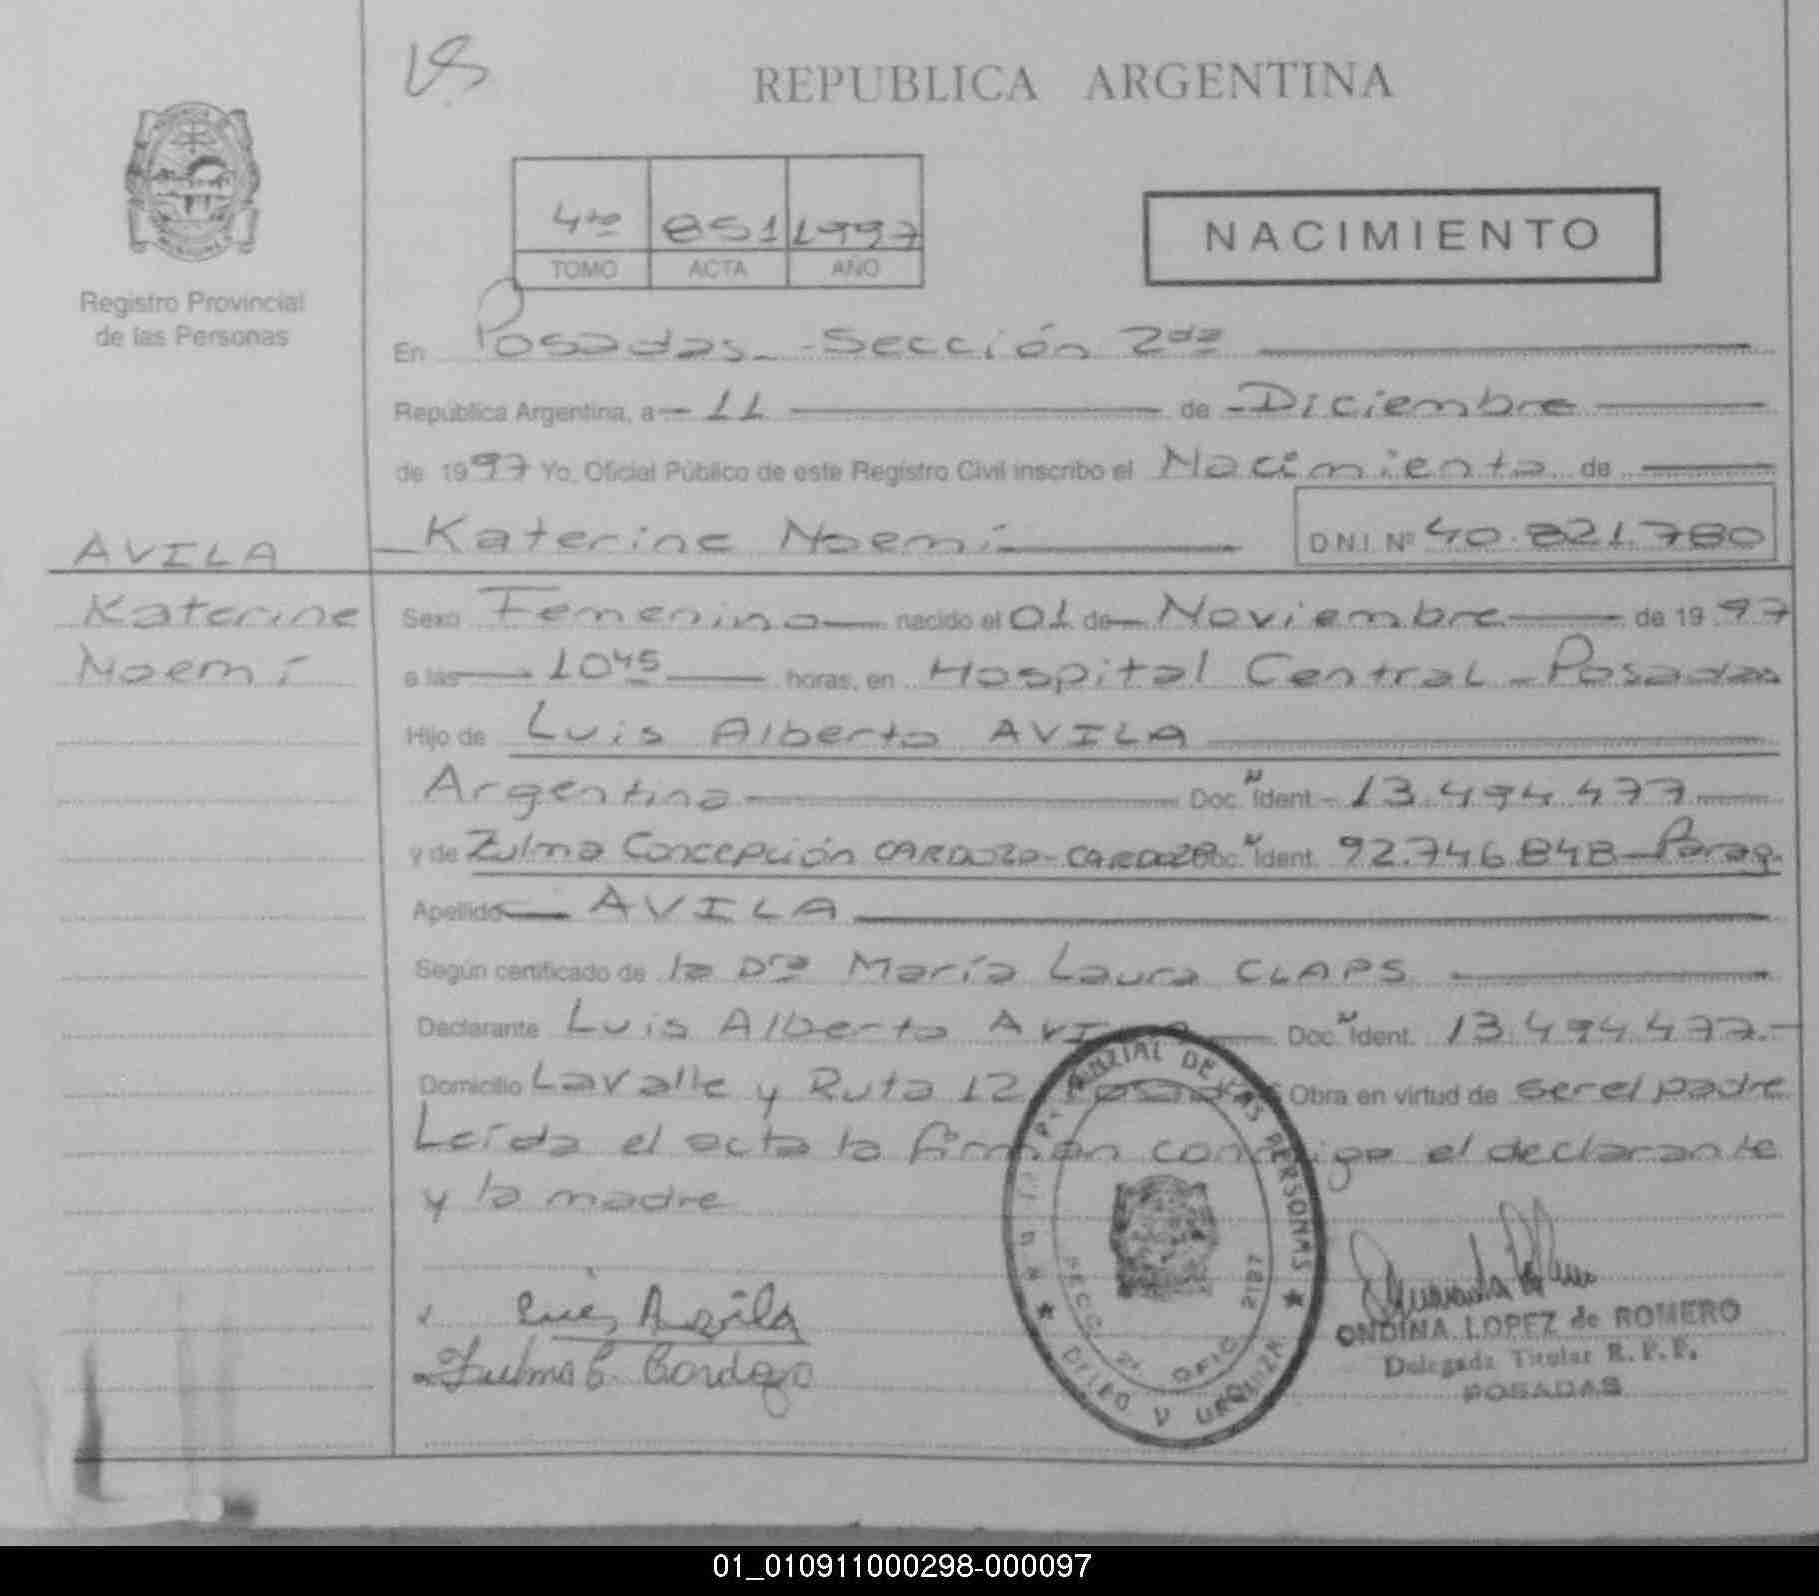 REPUBLICA ARGENTINA
4to 851 1997
TOMO ACTA AÑO
NACIMIENTO
Registro Provincial
de las Personas
En Posadas - Sección 2da
República Argentina, a 11 de Diciembre
de 1997 Yo, Oficial Público de este Registro Civil inscribo el Nacimiento de
AVILA Katerine Noemí D.N.I. Nº 40.821.780
Katerine
Noemí
Sexo Femenino nacido el 01 de Noviembre de 1997
a las 10 45 horas, en Hospital Central - Posadas
Hijo de Luis Alberto AVILA
Argentina Doc. Ident. 13.494.477
y de Zulma Concepción CARDOZO - CARDOZO Doc. Ident. 92.746.848 - Parag.
Apellido AVILA
Según certificado de la Dra María Laura CLAPS
Declarante Luis Alberto AVILA Doc. Ident. 13.494.477.-
Domicilio Lavalle y Ruta 12 Posadas Obra en virtud de ser el padre
Leída el acta la firman conmigo el declarante
y la madre
Luis Avila
Zulma C. Cardozo
DE LAS PERSONAS
SECC. 2a OFIC. 2187
URQUIZA
ONDINA LOPEZ de ROMERO
Delegada Titular R.P.P.
POSADAS
01_010911000298-000097